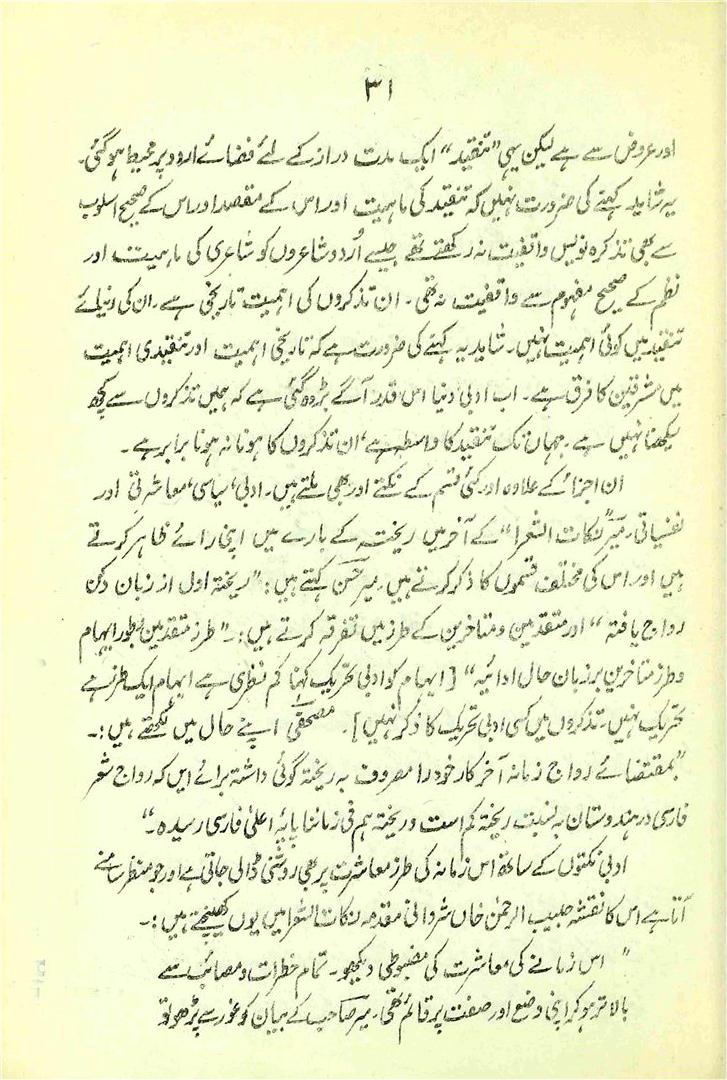 ۳۱
اور عروض سے ہے لیکن یہی "تنقید" ایک مدت دراز کے لئے فضائے اردو پر محیط ہو گئی۔
یہ شاید کہنے کی ضرورت نہیں کہ تنقید کی ماہیت اور اس کے مقصد اور اس کے صحیح اسلوب
سے بھی تذکرہ نویس واقفیت نہ رکھتے تھے جیسے اُردو شاعروں کو شاعری کی ماہیت اور
نظم کے صحیح مفہوم سے واقفیت نہ تھی۔ ان تذکروں کی اہمیت تاریخی ہے۔ ان کی دنیائے
تنقید میں کوئی اہمیت نہیں۔ شاید یہ کہنے کی ضرورت ہے کہ تاریخی اہمیت اور تنقیدی اہمیت
میں مشرقین کا فرق ہے۔ اب ادبی دنیا اس قدر آگے بڑھ گئی ہے کہ ہمیں تذکروں سے کچھ
سیکھنا نہیں ہے۔ جہاں تک تنقید کا واسطہ ہے، ان تذکروں کا ہونا نہ ہونا برابر ہے۔
ان اجزاء کے علاوہ اور کئی قسم کے نکتے اور بھی ملتے ہیں۔ ادبی، سیاسی، معاشرتی اور
نفسیاتی۔ میرؔ "نکات الشعرا" کے آخر میں ریختہ کے بارے میں اپنی رائے ظاہر کرتے
ہیں اور اس کی مختلف قسموں کا ذکر کرتے ہیں۔ میر حسنؔ کہتے ہیں: "ریختہ اول از زبان دکن
رواج یافتہ" اور متقدمین و متاخرین کے طرز میں تفرقہ کرتے ہیں:۔ "طرز متقدمین بطور ایہام
و طرز متاخرین بر زبان حال ادائیہ" [ایہام کو ادبی تحریک کہنا کم نظری ہے ایہام ایک طرز ہے
تحریک نہیں۔ تذکروں میں کسی ادبی تحریک کا ذکر نہیں]۔ مصحفیؔ اپنے حال میں لکھتے ہیں:۔
"بمقتضائے رواج زمانہ آخر کار خود را مصروف بہ ریختہ گوئی داشتہ برائے ایں کہ رواج شعر
فارسی در ہندوستان بہ نسبت ریختہ کم است و ریختہ ہم فی زماننا بپایۂ اعلیٰ فارسی رسیدہ۔"
ادبی نکتوں کے ساتھ اس زمانہ کی طرز معاشرت پر بھی روشنی ڈالی جاتی ہے اور جو منظر سامنے
آتا ہے اس کا نقشہ حبیب الرحمٰن خاں شروانی مقدمہ نکات الشعرا میں یوں کھینچتے ہیں:۔
"اس زمانے کی معاشرت کی مضبوطی دیکھو۔ تمام خطرات و مصائب سے
بالاتر ہو کر اپنی وضع اور صفت پر قائم تھی۔ میر صاحب کے بیان کو غور سے پڑھو تو